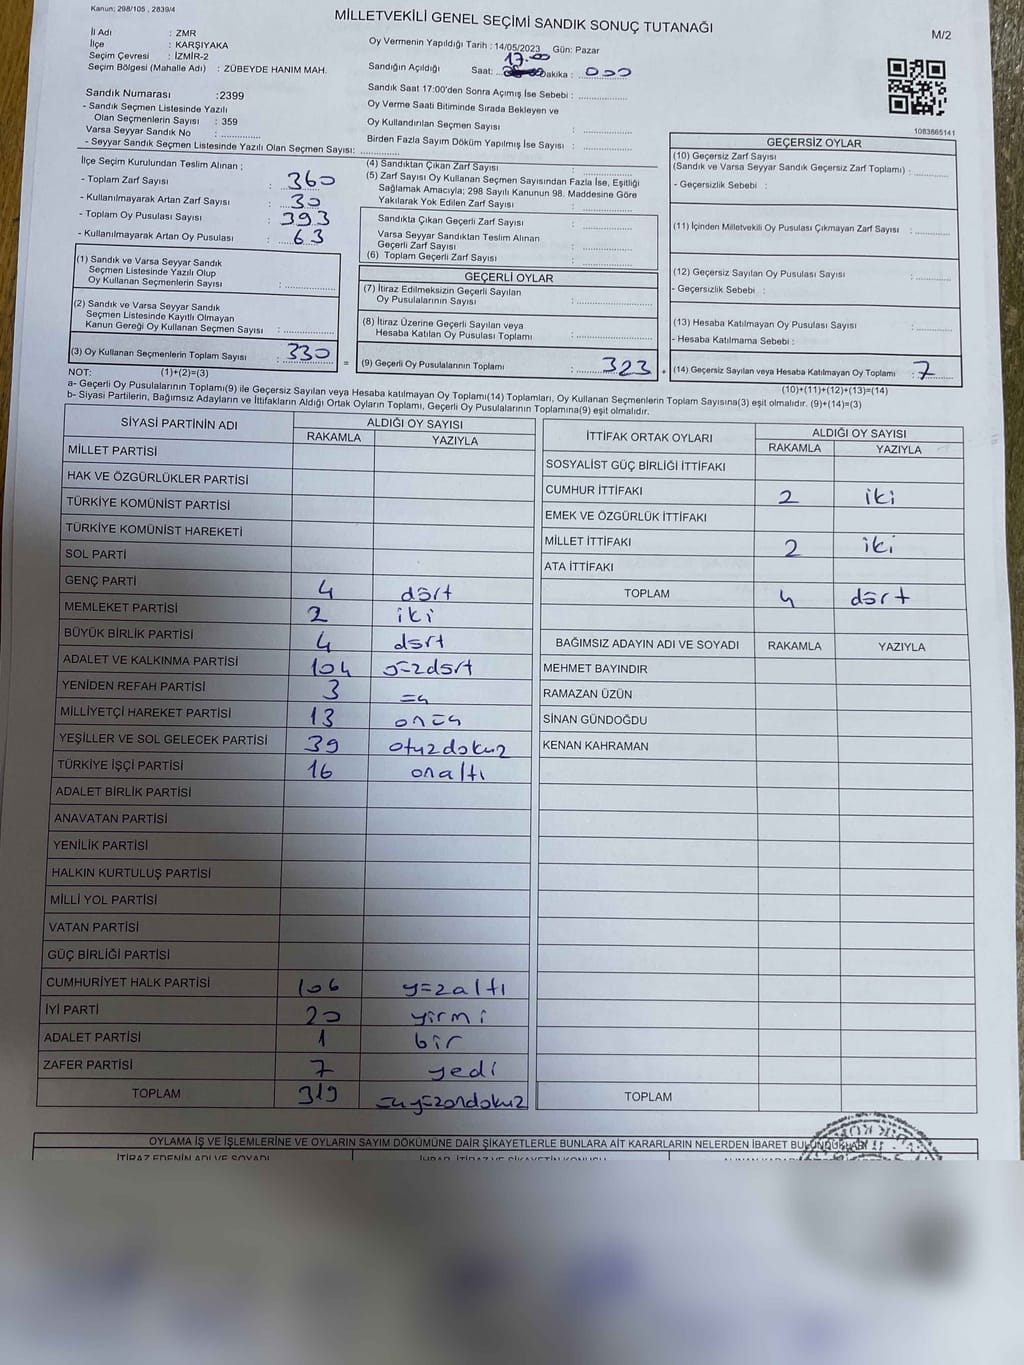 Kanun; 298/105 , 2839/4
MİLLETVEKİLİ GENEL SEÇİMİ SANDIK SONUÇ TUTANAĞI
M/2
İl Adı : ZMR
İlçe : KARŞIYAKA
Seçim Çevresi : İZMİR-2
Seçim Bölgesi (Mahalle Adı) : ZÜBEYDE HANIM MAH.
Oy Vermenin Yapıldığı Tarih : 14/05/2023 Gün: Pazar
17.00
Sandığın Açıldığı Saat: Dakika : 000
Sandık Saat 17:00'den Sonra Açımış İse Sebebi :
Oy Verme Saati Bitiminde Sırada Bekleyen ve
Oy Kullandırılan Seçmen Sayısı :
Birden Fazla Sayım Döküm Yapılmış İse Sayısı :
Sandık Numarası :2399
- Sandık Seçmen Listesinde Yazılı
Olan Seçmenlerin Sayısı : 359
Varsa Seyyar Sandık No :
- Seyyar Sandık Seçmen Listesinde Yazılı Olan Seçmen Sayısı:
1083865141
İlçe Seçim Kurulundan Teslim Alınan ;
- Toplam Zarf Sayısı : 360
- Kullanılmayarak Artan Zarf Sayısı : 30
- Toplam Oy Pusulası Sayısı : 393
- Kullanılmayarak Artan Oy Pusulası : 63
(1) Sandık ve Varsa Seyyar Sandık
Seçmen Listesinde Yazılı Olup
Oy Kullanan Seçmenlerin Sayısı :
(2) Sandık ve Varsa Seyyar Sandık
Seçmen Listesinde Kayıtlı Olmayan
Kanun Gereği Oy Kullanan Seçmen Sayısı :
(3) Oy Kullanan Seçmenlerin Toplam Sayısı : 330 =
(4) Sandıktan Çıkan Zarf Sayısı :
(5) Zarf Sayısı Oy Kullanan Seçmen Sayısından Fazla İse, Eşitliği
Sağlamak Amacıyla; 298 Sayılı Kanunun 98. Maddesine Göre
Yakılarak Yok Edilen Zarf Sayısı :
Sandıkta Çıkan Geçerli Zarf Sayısı :
Varsa Seyyar Sandıktan Teslim Alınan
Geçerli Zarf Sayısı :
(6) Toplam Geçerli Zarf Sayısı :
GEÇERLİ OYLAR
(7) İtiraz Edilmeksizin Geçerli Sayılan
Oy Pusulalarının Sayısı :
(8) İtiraz Üzerine Geçerli Sayılan veya
Hesaba Katılan Oy Pusulaları Toplamı :
(9) Geçerli Oy Pusulalarının Toplamı : 323 +
GEÇERSİZ OYLAR
(10) Geçersiz Zarf Sayısı
(Sandık ve Varsa Seyyar Sandık Geçersiz Zarf Toplamı) :
- Geçersizlik Sebebi :
(11) İçinden Milletvekili Oy Pusulası Çıkmayan Zarf Sayısı :
(12) Geçersiz Sayılan Oy Pusulası Sayısı :
- Geçersizlik Sebebi :
(13) Hesaba Katılmayan Oy Pusulası Sayısı :
- Hesaba Katılmama Sebebi :
(14) Geçersiz Sayılan veya Hesaba Katılmayan Oy Toplamı : 7
NOT: (1)+(2)=(3)
(10)+(11)+(12)+(13)=(14)
a- Geçerli Oy Pusulalarının Toplamı(9) ile Geçersiz Sayılan veya Hesaba katılmayan Oy Toplamı(14) Toplamları, Oy Kullanan Seçmenlerin Toplam Sayısına(3) eşit olmalıdır. (9)+(14)=(3)
b- Siyasi Partilerin, Bağımsız Adayların ve İttifakların Aldığı Ortak Oyların Toplamı, Geçerli Oy Pusulalarının Toplamına(9) eşit olmalıdır.
SİYASİ PARTİNİN ADI ALDIĞI OY SAYISI
RAKAMLA YAZIYLA
MİLLET PARTİSİ
HAK VE ÖZGÜRLÜKLER PARTİSİ
TÜRKİYE KOMÜNİST PARTİSİ
TÜRKİYE KOMÜNİST HAREKETİ
SOL PARTİ
GENÇ PARTİ 4 dört
MEMLEKET PARTİSİ 2 iki
BÜYÜK BİRLİK PARTİSİ 4 dört
ADALET VE KALKINMA PARTİSİ 104 yüzdört
YENİDEN REFAH PARTİSİ 3 üç
MİLLİYETÇİ HAREKET PARTİSİ 13 onüç
YEŞİLLER VE SOL GELECEK PARTİSİ 39 otuzdokuz
TÜRKİYE İŞÇİ PARTİSİ 16 onaltı
ADALET BİRLİK PARTİSİ
ANAVATAN PARTİSİ
YENİLİK PARTİSİ
HALKIN KURTULUŞ PARTİSİ
MİLLİ YOL PARTİSİ
VATAN PARTİSİ
GÜÇ BİRLİĞİ PARTİSİ
CUMHURİYET HALK PARTİSİ 106 yüzaltı
İYİ PARTİ 20 yirmi
ADALET PARTİSİ 1 bir
ZAFER PARTİSİ 7 yedi
TOPLAM 319 üçyüzondokuz
İTTİFAK ORTAK OYLARI ALDIĞI OY SAYISI
RAKAMLA YAZIYLA
SOSYALİST GÜÇ BİRLİĞİ İTTİFAKI
CUMHUR İTTİFAKI 2 iki
EMEK VE ÖZGÜRLÜK İTTİFAKI
MİLLET İTTİFAKI 2 iki
ATA İTTİFAKI
TOPLAM 4 dört
BAĞIMSIZ ADAYIN ADI VE SOYADI RAKAMLA YAZIYLA
MEHMET BAYINDIR
RAMAZAN ÜZÜN
SİNAN GÜNDOĞDU
KENAN KAHRAMAN
TOPLAM
OYLAMA İŞ VE İŞLEMLERİNE VE OYLARIN SAYIM DÖKÜMÜNE DAİR ŞİKAYETLERLE BUNLARA AİT KARARLARIN NELERDEN İBARET BULUNDUKLARI
İTİRAZ EDENİN ADI VE SOYADI